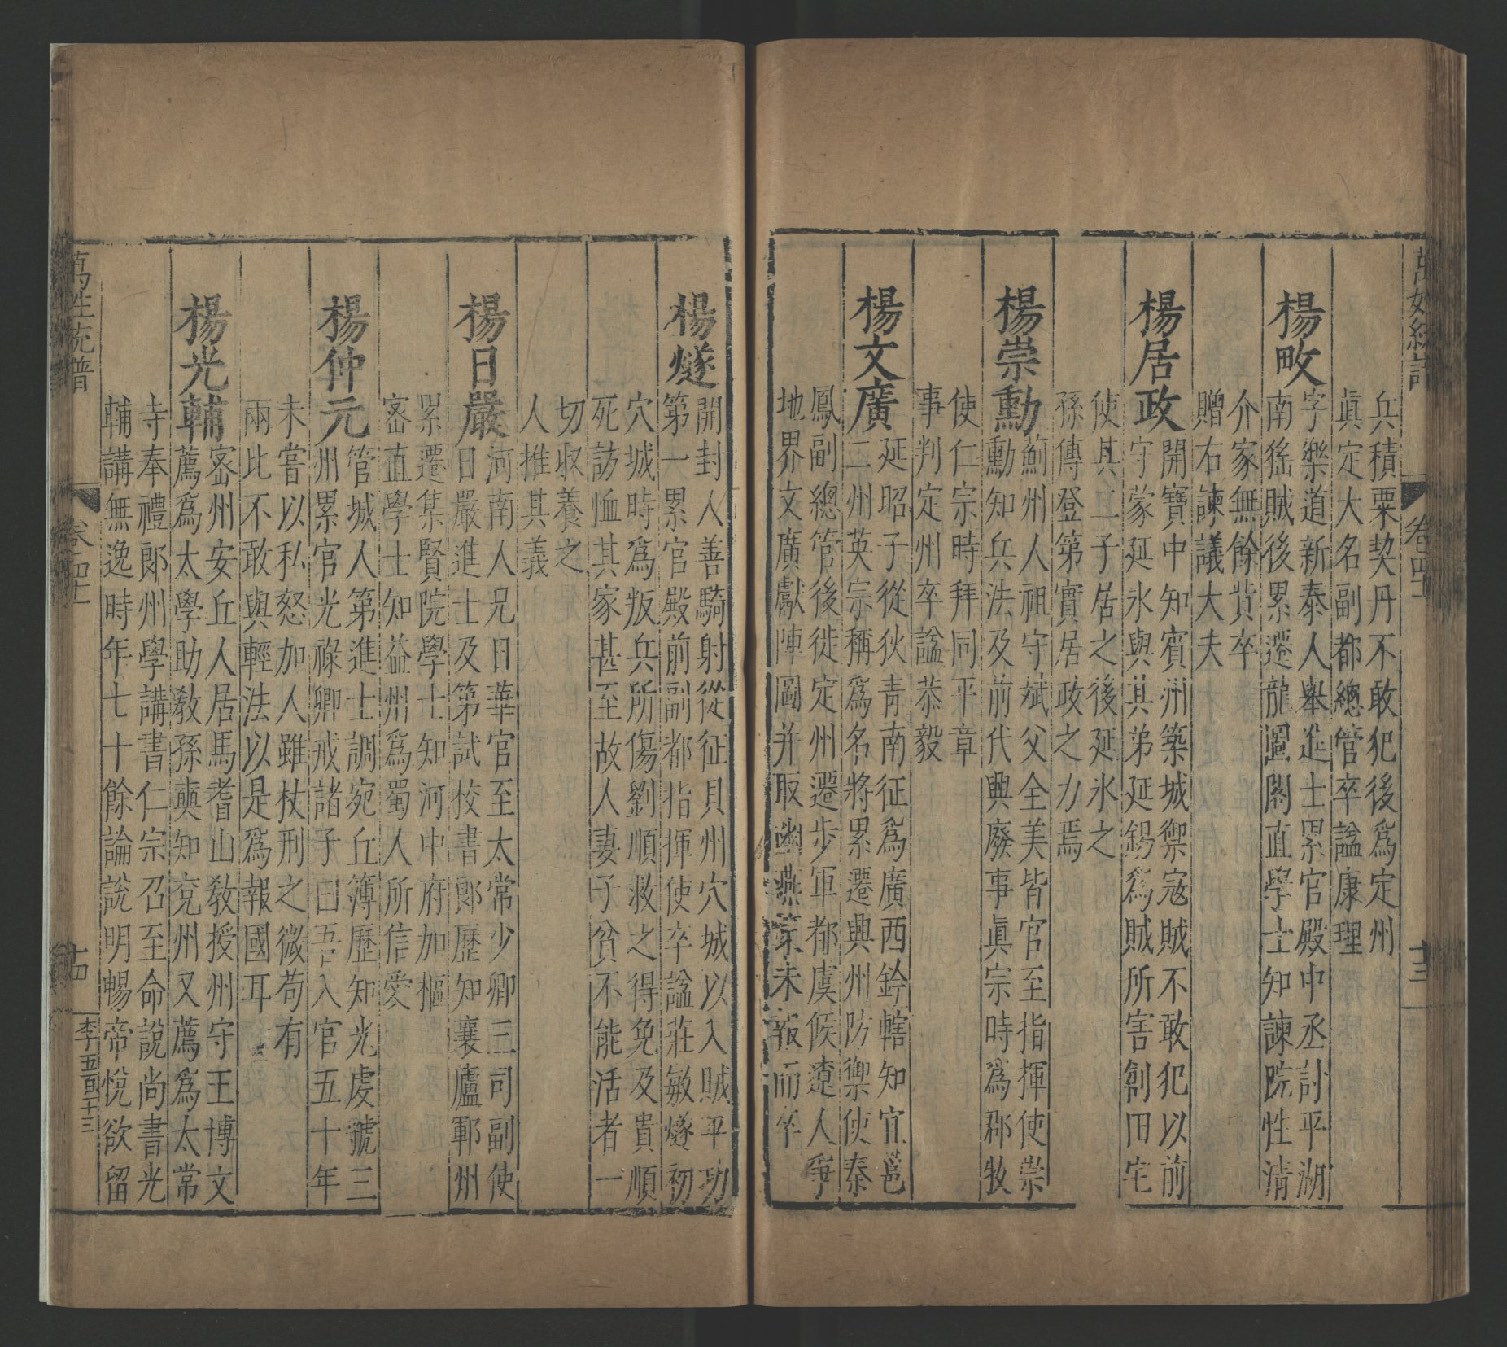 兵積粟契丹不敢犯後爲定州
眞定大名副都總管卒諡康理
楊畋字樂道新泰人舉進士累官殿中丞討平湖
南猺賊後累遷龍圖閣直學士知諫院性清
介家無餘貲卒
贈右諫議大夫
楊居政開寶中知賓州築城禦寇賊不敢犯以前
守蒙延永與其弟延錫爲賊所害創田宅
使其二子居之後延永之
孫傳登第實居政之力焉
楊崇勳薊州人祖守斌父全美皆官至指揮使崇
勳知兵法及前代興廢事眞宗時爲郡牧
使仁宗時拜同平章
事判定州卒諡恭毅
楊文廣延昭子從狄青南征爲廣西鈐轄知宜邕
二州英宗稱爲名將累遷興州防禦使秦
鳳副總管後徙定州遷步軍都虞候遼人爭
地界文廣獻陣圖并取幽燕策未報而卒
萬姓統譜
卷四十二
十三
楊燧開封人善騎射從征貝州穴城以入賊平功
第一累官殿前副都指揮使卒諡莊敏燧初
穴城時爲叛兵所傷劉順救之得免及貴順
死訪恤其家甚至故人妻子貧不能活者一
切収養之
人推其義
楊日嚴河南人兄日華官至太常少卿三司副使
日嚴進士及第試校書郎歷知襄廬鄆州
累遷集賢院學士知河中府加樞
密直學士知益州爲蜀人所信愛
楊仲元管城人第進士調宛丘簿歷知光虔虢三
州累官光祿卿戒諸子曰吾入官五十年
未嘗以私怒加人雖杖刑之微苟有
兩此不敢與輕法以是爲報國耳
楊光輔密州安丘人居馬耆山敎授州守王博文
薦爲太學助敎孫奭知兗州又薦爲太常
寺奉禮郎州學講書仁宗召至命說尚書光
輔講無逸時年七十餘論說明暢帝悅欲留
萬姓統譜
卷四十二
十四
李五百十三